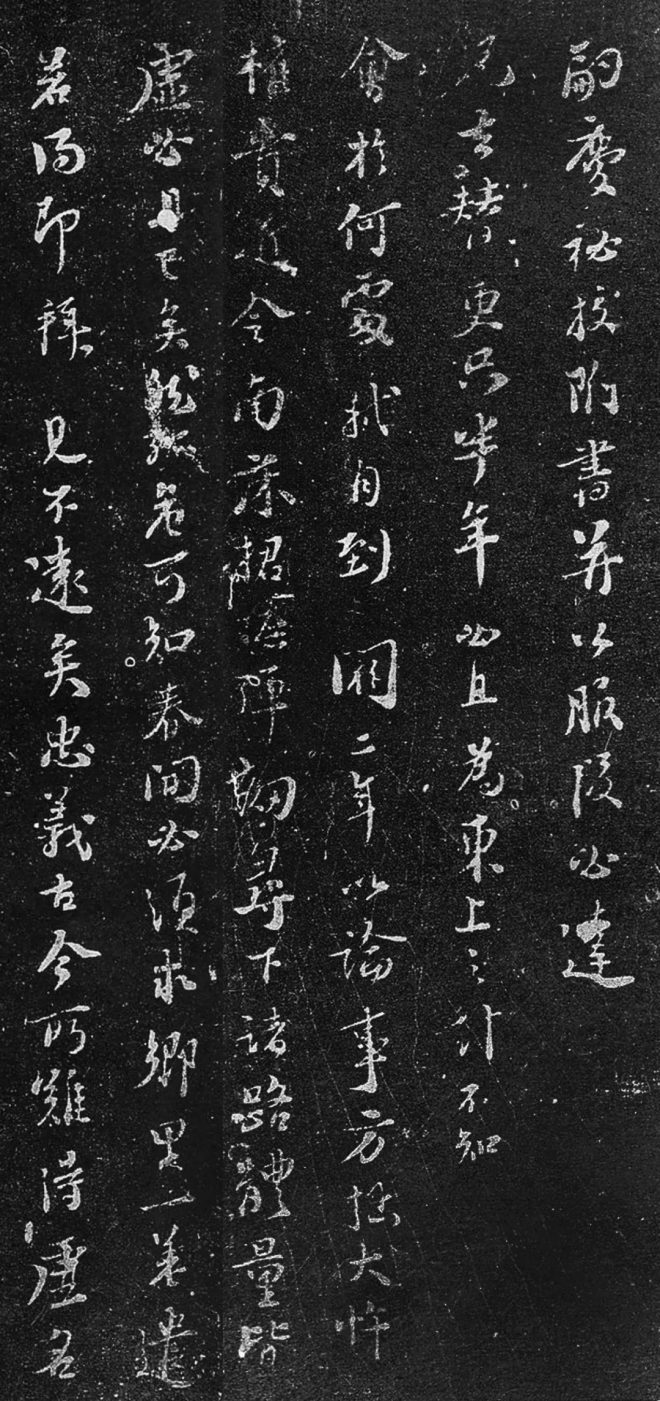 嗣慶秘校附書并以服陵必達
兄去替更只半年必且為東上之計不知
會於何處軾自到闕二年以論事方拙大忤
權貴近令南床捃摭彈劾尋下諸路體量皆
虛必且已矣然孤危可知春間必須求鄉里一差遣
若得即拜見不遠矣忠義古今所難得虛名